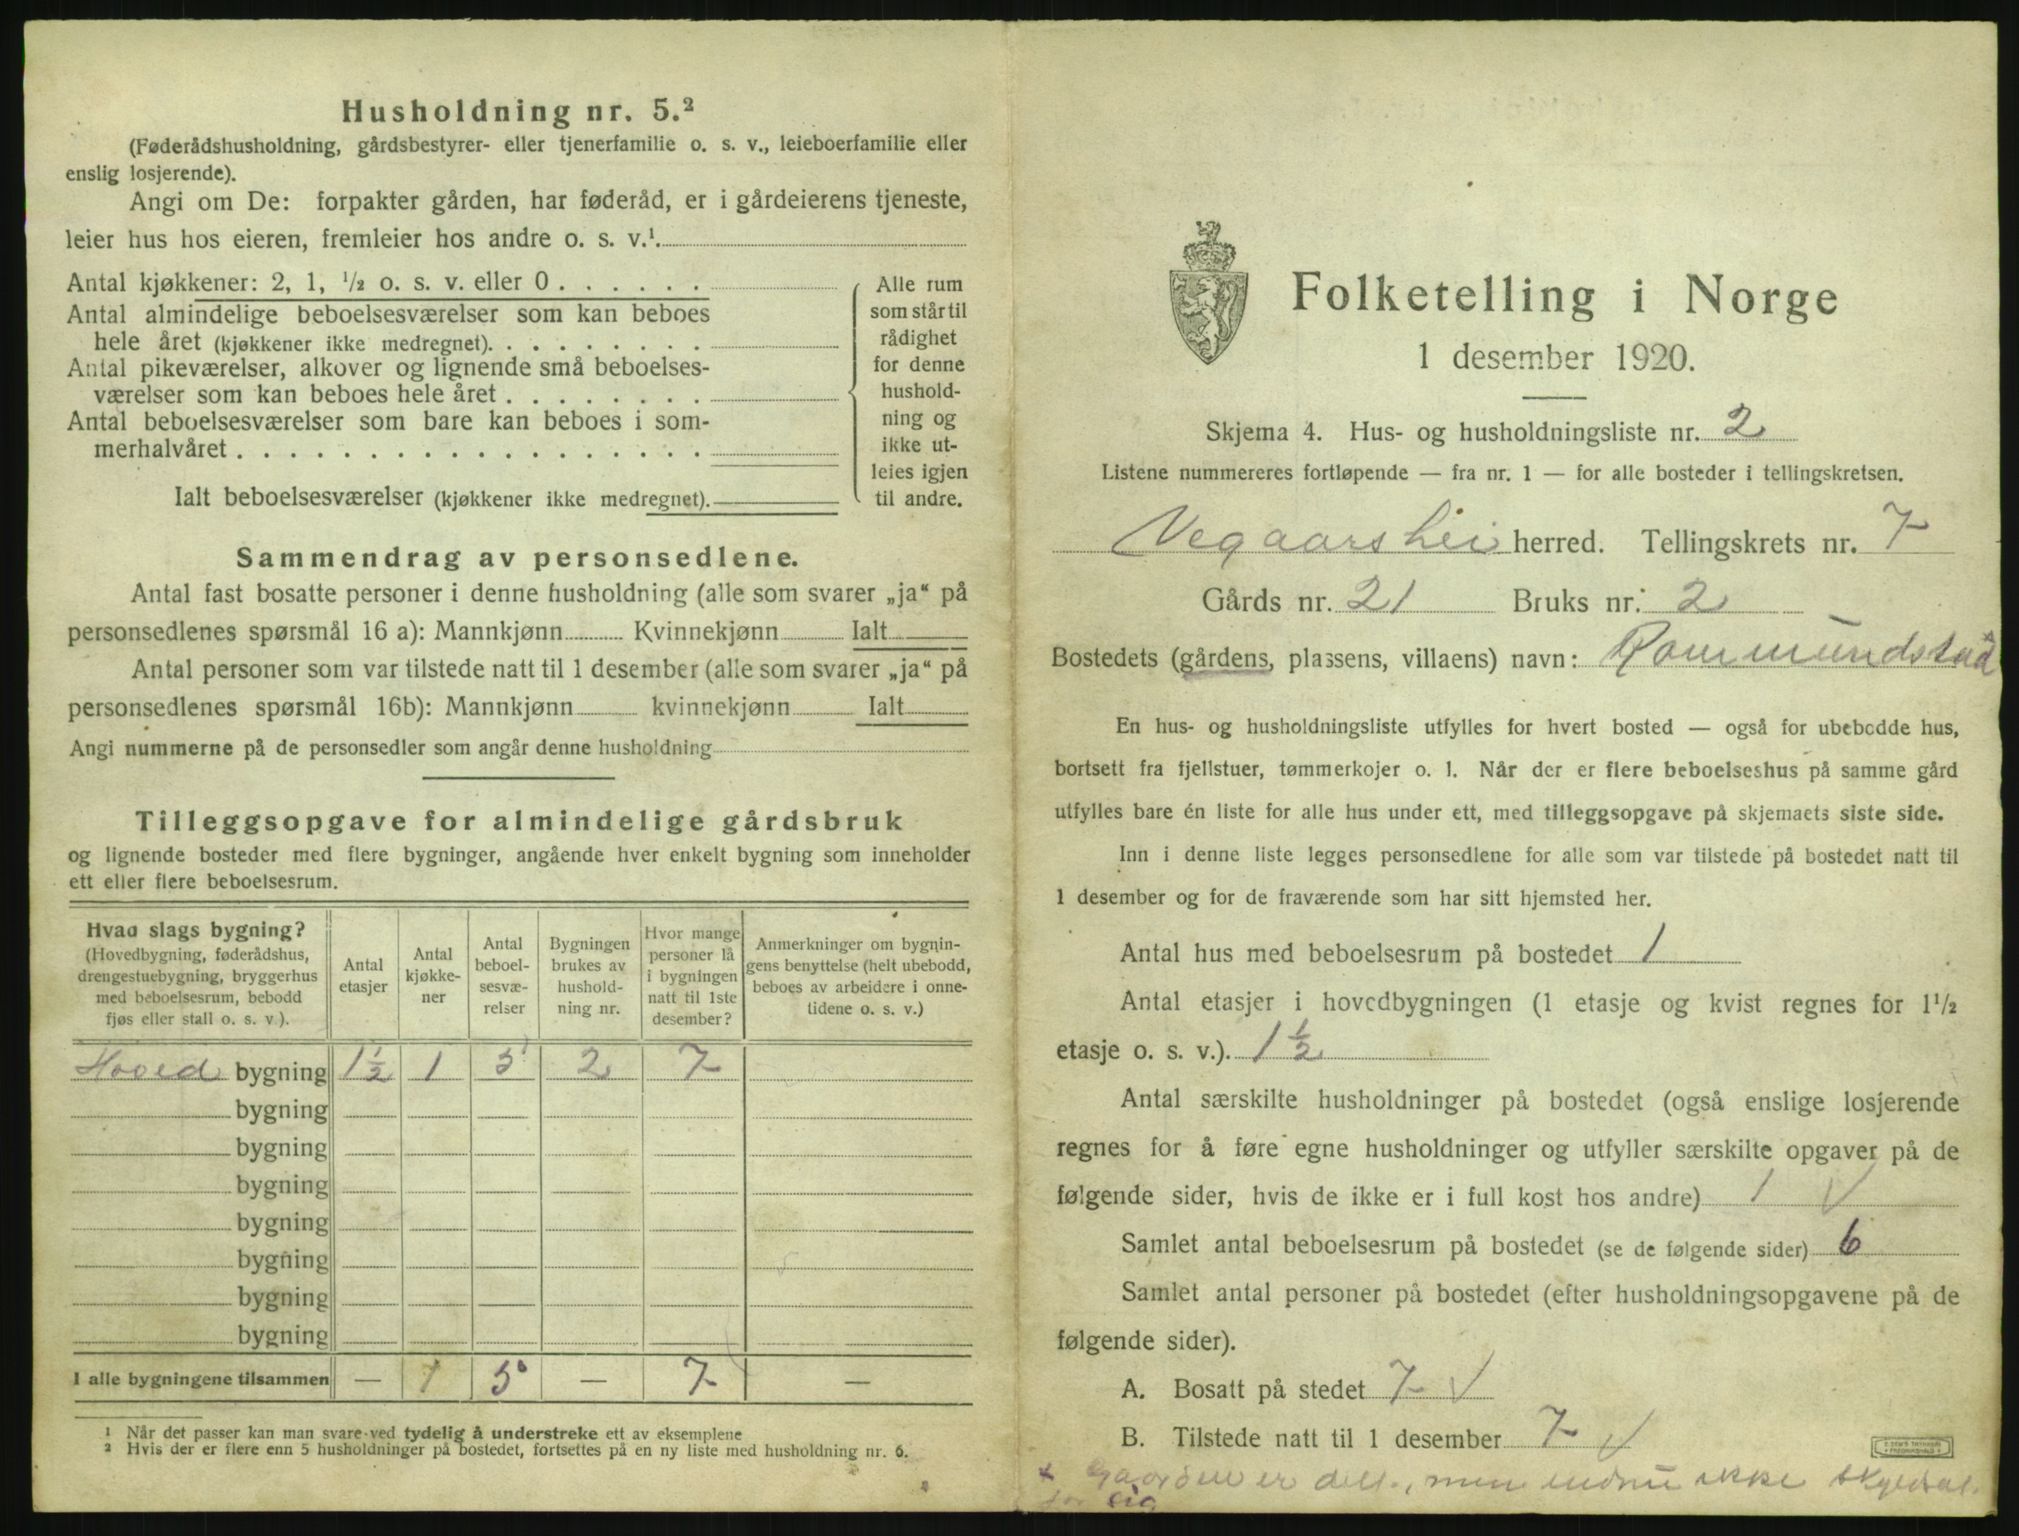 Husholdning nr. 5.²
(Føderådshusholdning, gårdsbestyrer- eller tjenerfamilie o. s. v., leieboerfamilie eller
enslig losjerende).
Angi om De: forpakter gården, har føderåd, er i gårdeierens tjeneste,
leier hus hos eieren, fremleier hos andre o. s. v.¹
Antal kjøkkener: 2, 1, ½ o. s. v. eller 0 . . . . . .
Antal almindelige beboelsesværelser som kan beboes
hele året (kjøkkener ikke medregnet). . . . . . . . .
Antal pikeværelser, alkover og lignende små beboelses-
værelser som kan beboes hele året . . . . . . . .
Antal beboelsesværelser som bare kan beboes i som-
merhalvåret . . . . . . . . . . . . . . . . . .
Ialt beboelsesværelser (kjøkkener ikke medregnet).
Alle rum
som står til
rådighet
for denne
hushold-
ning og
ikke ut-
leies igjen
til andre.
Sammendrag av personsedlene.
Antal fast bosatte personer i denne husholdning (alle som svarer „ja“ på
personsedlenes spørsmål 16 a): Mannkjønn Kvinnekjønn Ialt
Antal personer som var tilstede natt til 1 desember (alle som svarer „ja“ på
personsedlenes spørsmål 16b): Mannkjønn kvinnekjønn Ialt
Angi nummerne på de personsedler som angår denne husholdning
Tilleggsopgave for almindelige gårdsbruk
og lignende bosteder med flere bygninger, angående hver enkelt bygning som inneholder
ett eller flere beboelsesrum.
Hvad slags bygning?
(Hovedbygning, føderådshus,
drengestuebygning, bryggerhus
med beboelsesrum, bebodd
fjøs eller stall o. s. v ).
Antal
etasjer
Antal
kjøkke-
ner
Antal
beboel-
sesvæ-
relser
Bygningen
brukes av
hushold-
ning nr.
Hvor mange
personer lå
i bygningen
natt til 1ste
desember?
Anmerkninger om bygnin-
gens benyttelse (helt ubebodd,
beboes av arbeidere i onne-
tidene o. s. v.)
Hoved bygning 1½ 1 5 2 7
bygning
bygning
bygning
bygning
bygning
bygning
bygning
I alle bygningene tilsammen — 1 5 — 7 —
¹ Når det passer kan man svare ved tydelig å understreke ett av eksemplene
² Hvis der er flere enn 5 husholdninger på bostedet, fortsettes på en ny liste med husholdning nr. 6.
Folketelling i Norge
1 desember 1920.
Skjema 4. Hus- og husholdningsliste nr. 2
Listene nummereres fortløpende — fra nr. 1 — for alle bosteder i tellingskretsen.
Vegaarshei herred. Tellingskrets nr. 7
Gårds nr. 21 Bruks nr. 2
Bostedets (gårdens, plassens, villaens) navn: Rommundstad
En hus- og husholdningsliste utfylles for hvert bosted — også for ubebodde hus,
bortsett fra fjellstuer, tømmerkojer o. l. Når der er flere beboelseshus på samme gård
utfylles bare én liste for alle hus under ett, med tilleggsopgave på skjemaets siste side.
Inn i denne liste legges personsedlene for alle som var tilstede på bostedet natt til
1 desember og for de fraværende som har sitt hjemsted her.
Antal hus med beboelsesrum på bostedet 1
Antal etasjer i hovedbygningen (1 etasje og kvist regnes for 1½
etasje o. s. v.). 1½
Antal særskilte husholdninger på bostedet (også enslige losjerende
regnes for å føre egne husholdninger og utfyller særskilte opgaver på de
følgende sider, hvis de ikke er i full kost hos andre) 1 √
Samlet antal beboelsesrum på bostedet (se de følgende sider) 6
Samlet antal personer på bostedet (efter husholdningsopgavene på de
følgende sider).
A. Bosatt på stedet 7 √
B. Tilstede natt til 1 desember 7 √
x Gaarden er delt, men endnu ikke
for sig